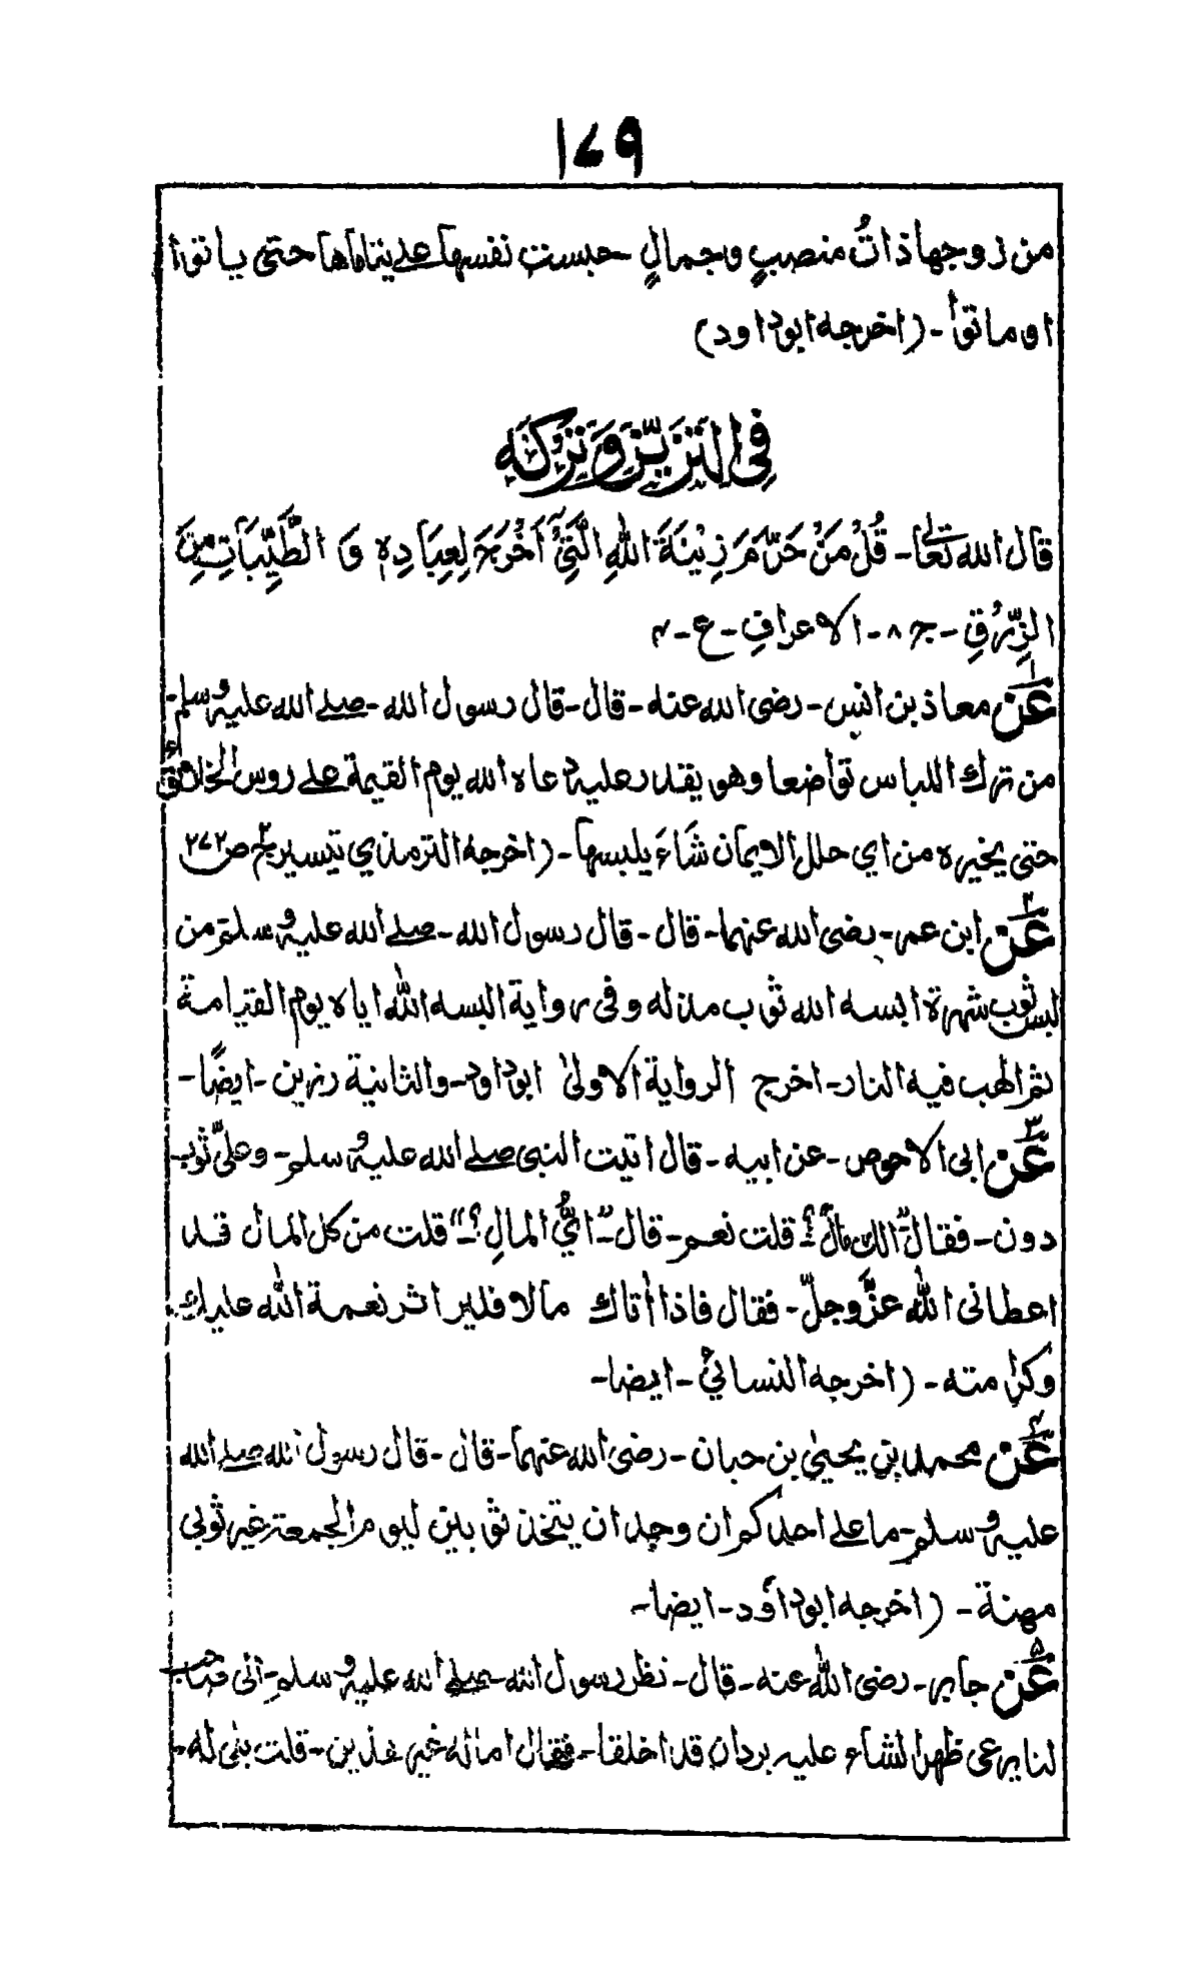 ۱۷۹
من زوجها ذاتُ منصبٍ وجمالٍ حبست نفسها علے يتاماها حتى بانوا
او ماتوا - (اخرجه ابوداود)
فِى التَزَيّنِ وَتَرْكِهِ
قال الله تعالى - قُلْ مَنْ حَرَّمَ زِيْنَةَ اللهِ الَّتِىْ اَخْرَجَ لِعِبَادِهٖ وَ الطَّيِّبَاتِ مِنَ
الرِّزْقِ - ج ۸ - الاعرافِ - ع - ۴
۱ عَن معاذ بن انس - رضى الله عنه - قال - قال رسول الله - صلے الله عليه وسلم -
من ترك اللباس تواضعا وهو يقدر عليه دعاه الله يوم القيمة علے روس الخلائق
حتى يخيره من اي حلل الايمان شَاءَ يلبسها - (اخرجه الترمذي تيسير ج ۲ ص ۲۷۲
۲ عَن ابن عمر - رضى الله عنهما - قال - قال رسول الله - صلے الله عليه وسلم من
لبس ثوب شهرة البسه الله ثوب مذله وفى رواية البسه اللّٰه اياه يوم القيامة
ثم الهب فيه النار - اخرج الرواية الاولىٰ ابوداود - والثانية رزين - ايضًا -
۳ عَن ابى الاحوص - عن ابيه - قال اتيت النبى صلے الله عليه وسلم - وعلىّ ثوب
دون - فقال "الك مالٌ؟" قلت نعم - قال "اىُّ المالِ؟" قلت من كل المال قد
اعطانى اللّٰه عزّ وجلّ - فقال فاذا أتاك مالا فلير اثر نعمة اللّٰه عليك
وكرامته - (اخرجه النسائيؒ - ايضا -
۴ عَن محمد بن يحيىٰ بن حبان - رضى الله عنهما - قال - قال رسول الله صلے الله
عليه وسلم - ما علے احدكم ان وجد ان يتخذ ثوبين ليوم الجمعة غير ثوبي
مهنة - (اخرجه ابوداؤد - ايضا -
۵ عَن جابر - رضى اللّٰه عنه - قال - نظر رسول الله - صلے الله عليه وسلم - الى صاحب
لنا يرعى ظهرا لنا وعليه بردان قد اخلقا - فقال اماله غير هذين - قلت بلى له -